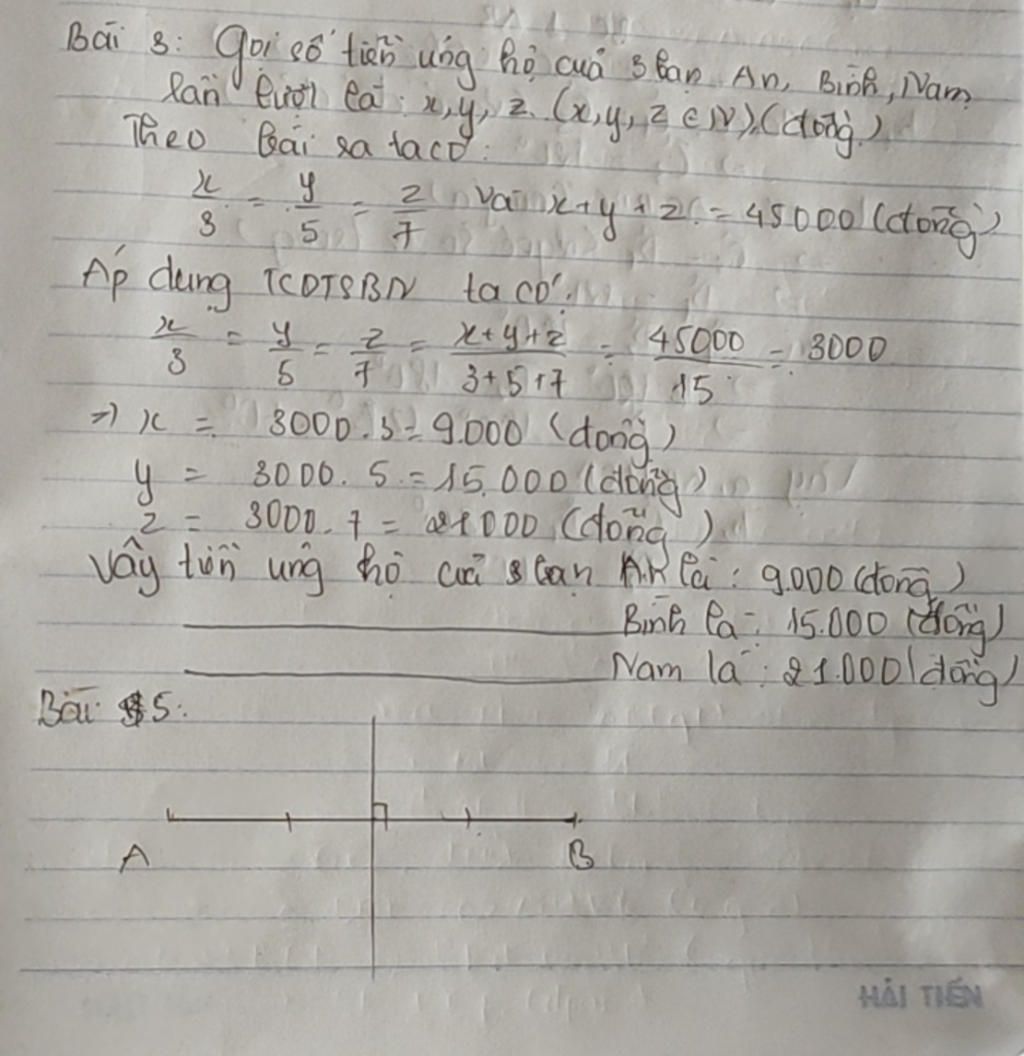 Bài 3: Gọi số tiền ủng hộ của 3 bạn An, Bình, Nam
lần lượt là: x, y, z. (x, y, z ∈ N). (đồng)
Theo bài ra ta có:
x/3 = y/5 = z/7 và x + y + z = 45000 (đồng)
Áp dụng TCDTSBN ta có:
x/3 = y/5 = z/7 = (x+y+z)/(3+5+7) = 45000/15 = 3000
=> x = 3000.3 = 9.000 (đồng)
y = 3000.5 = 15.000 (đồng)
z = 3000.7 = 21000 (đồng)
Vậy tiền ủng hộ của 3 bạn An là: 9.000 (đồng)
Bình là: 15.000 (đồng)
Nam là: 21.000 (đồng)
Bài 5:
A B
HẢI TIẾN